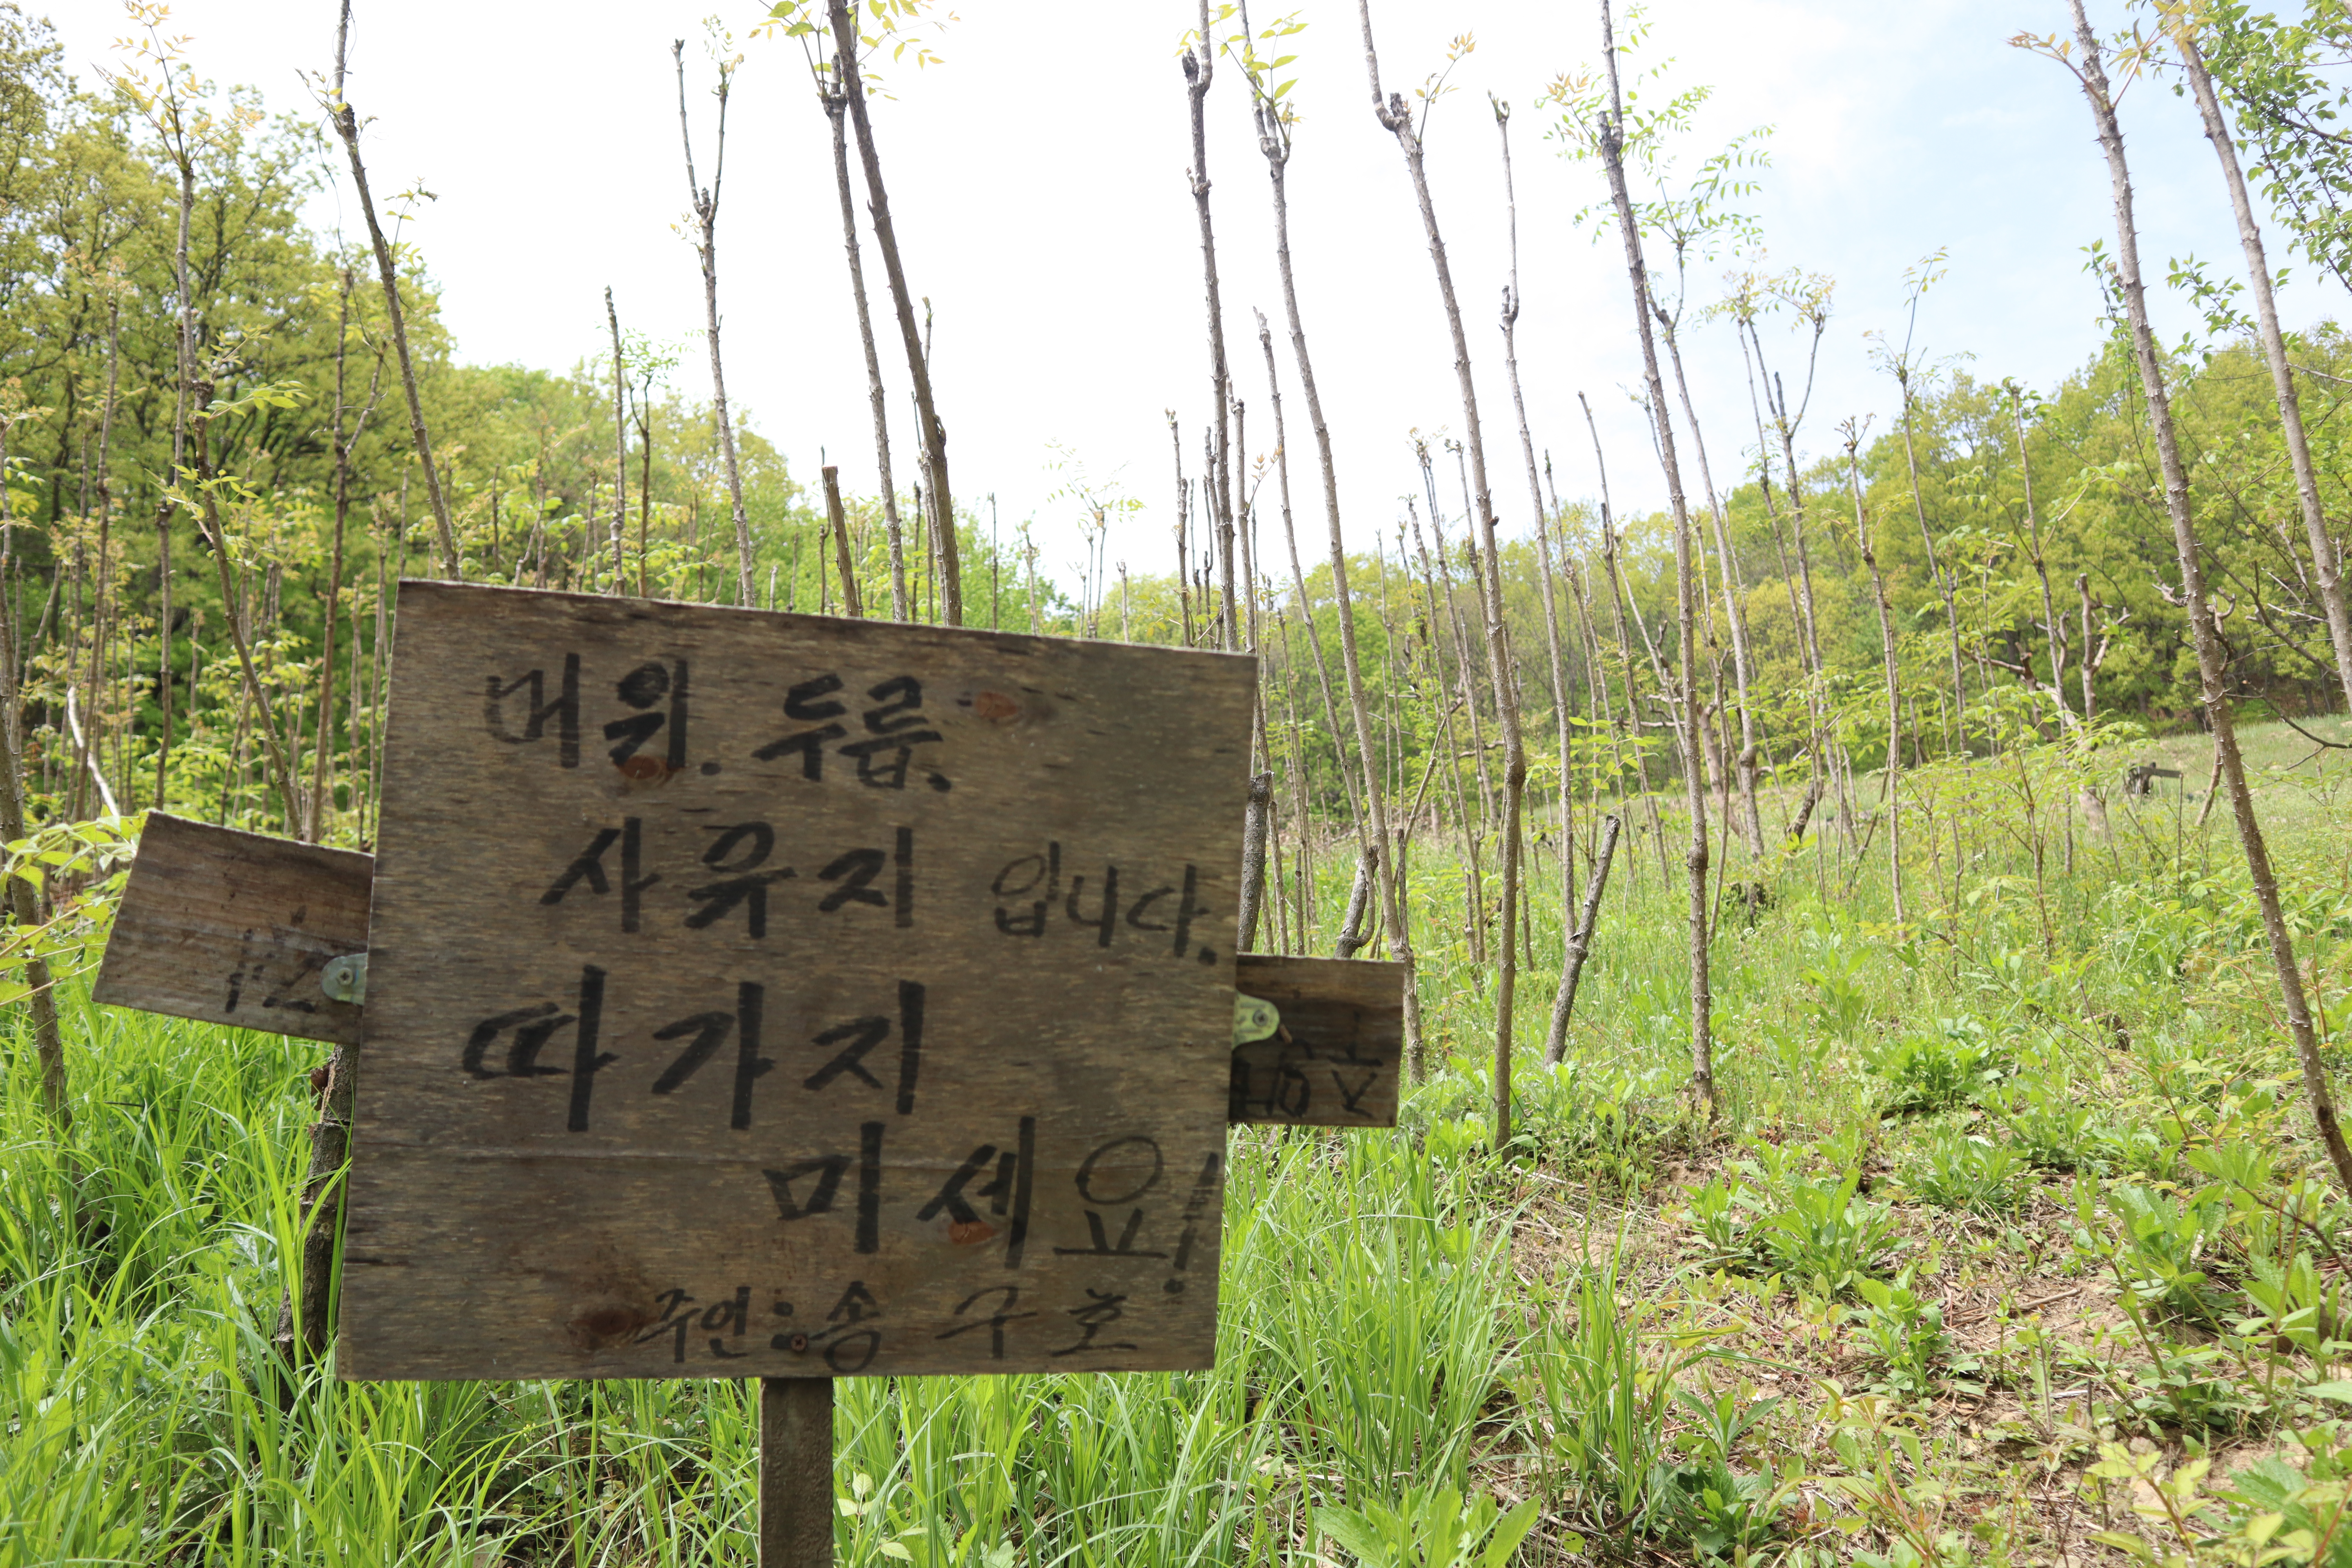 머위. 두릅.
사유지 입니다.
따가지
미세요!
주인:송구호